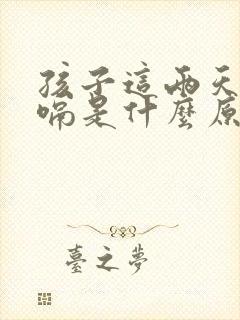 孩子這兩天
嗝是什麼原
臺之夢